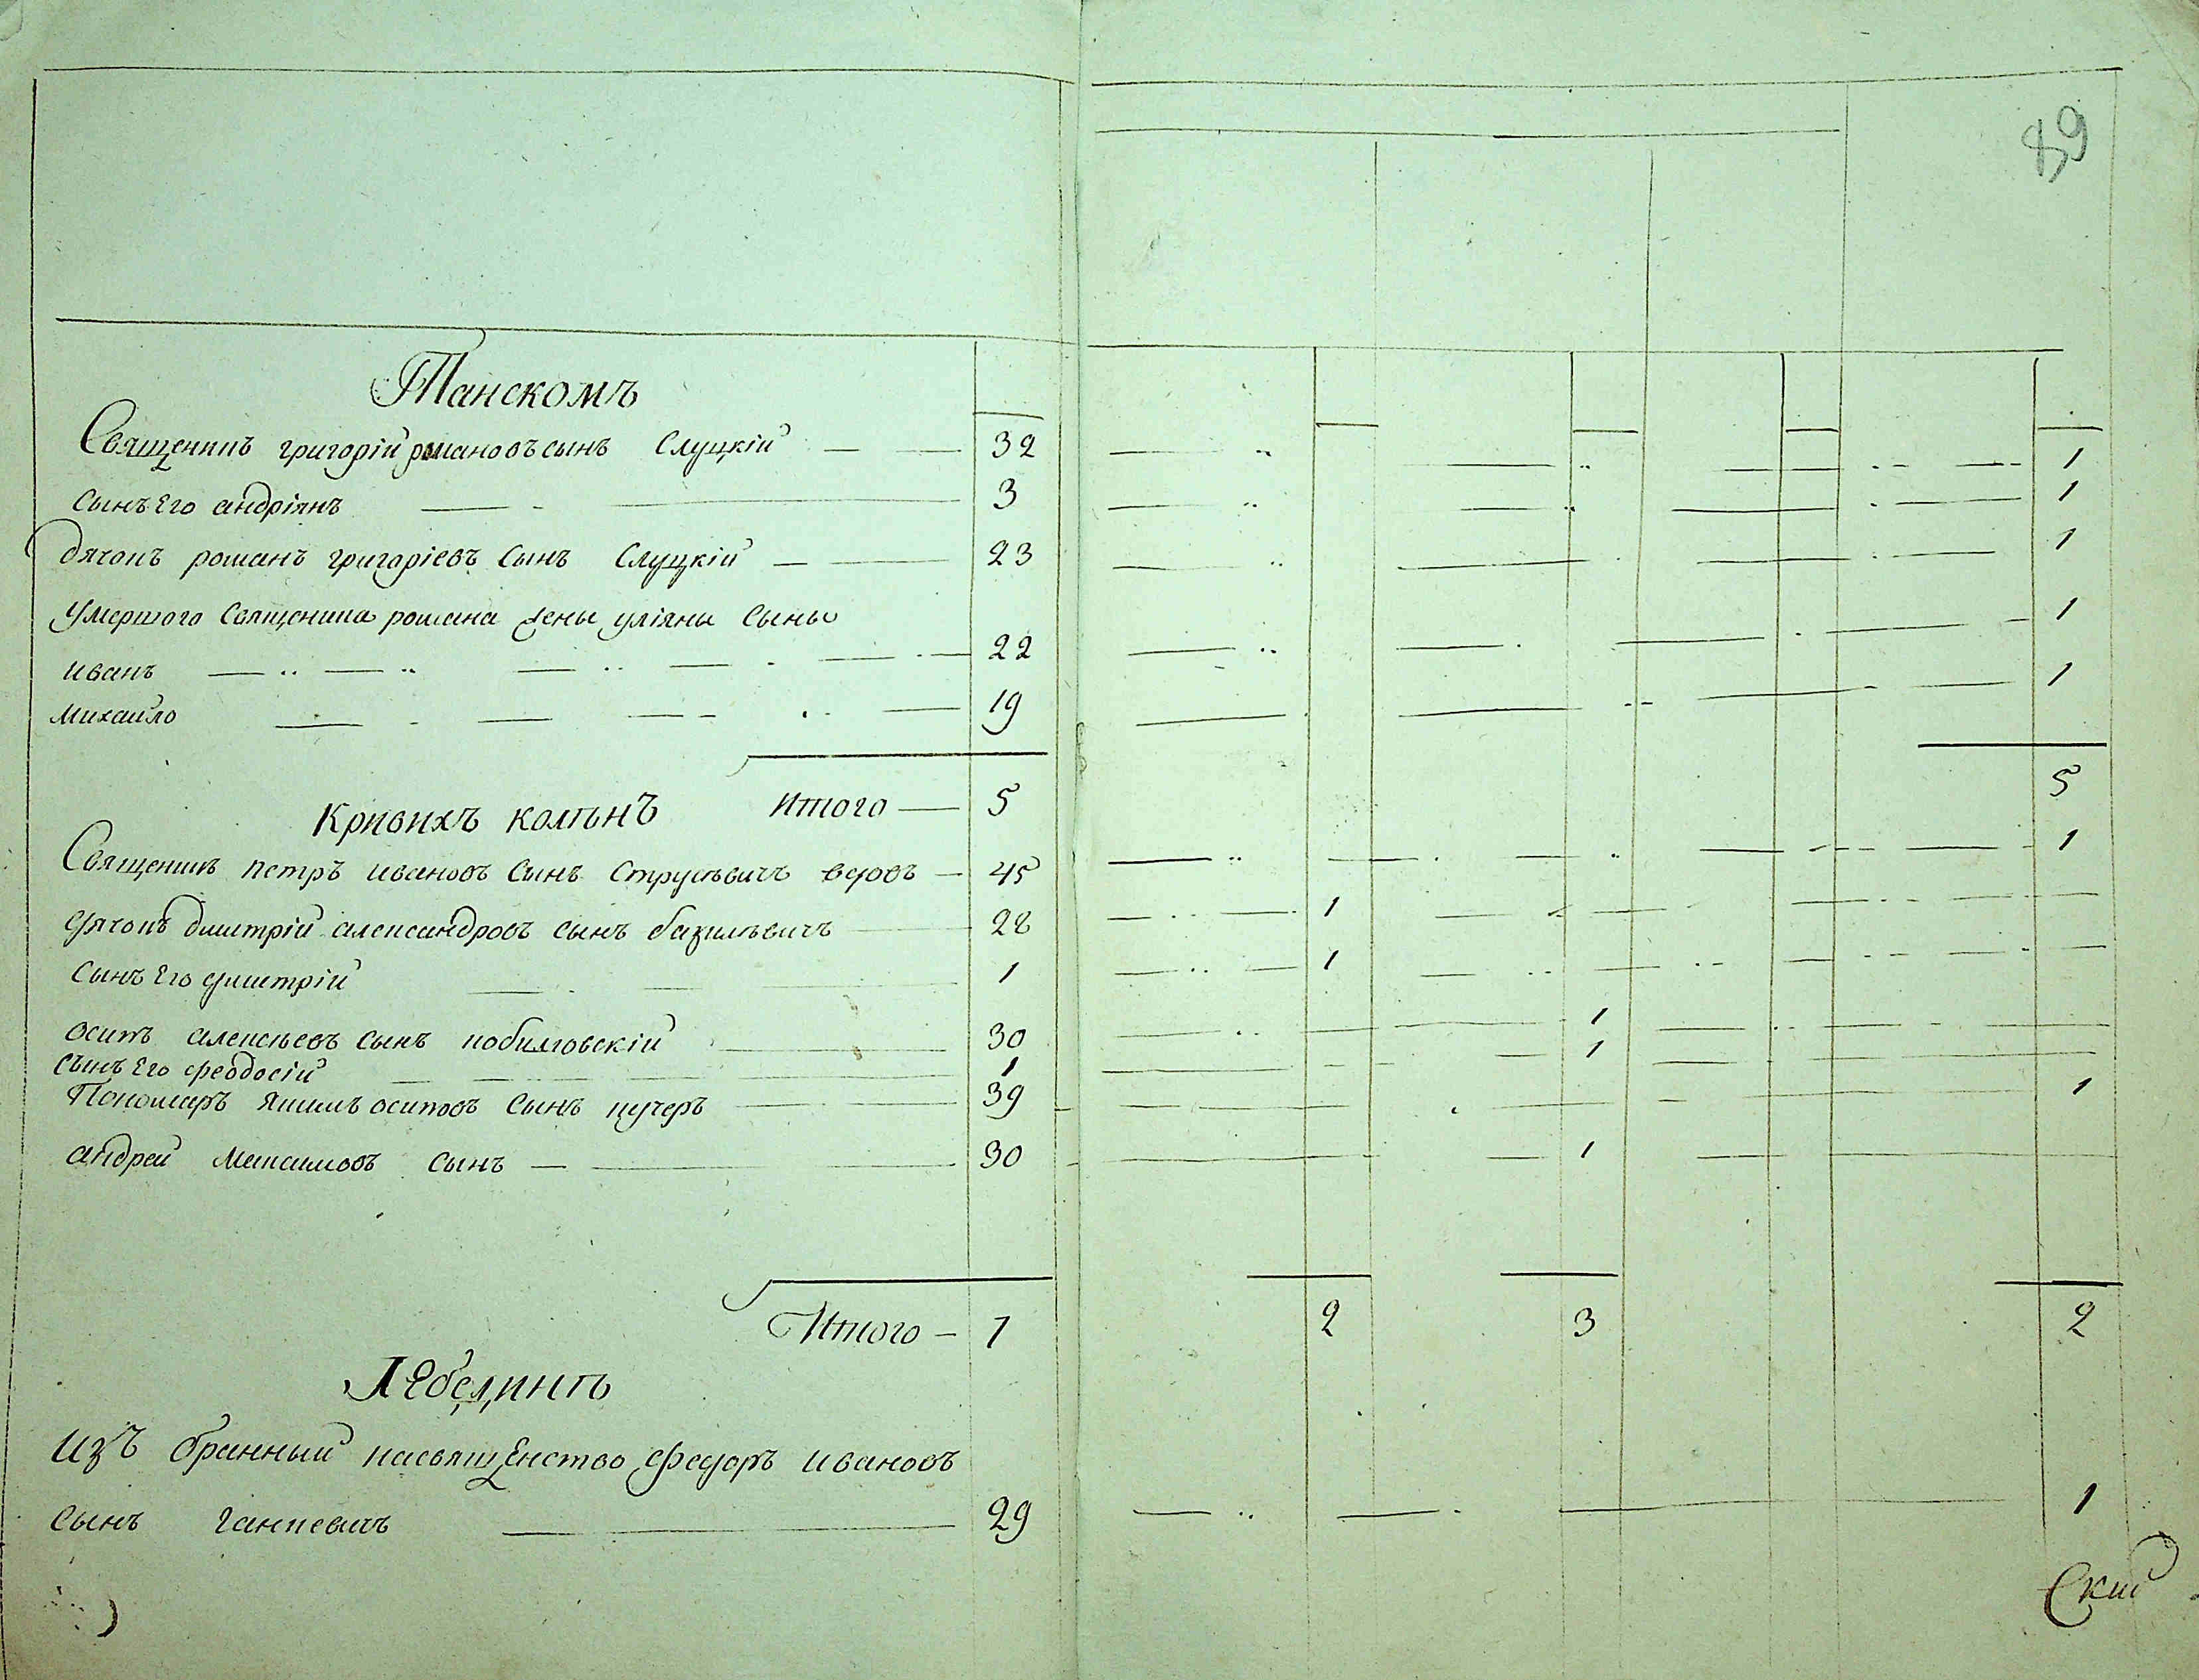 89
Танскомъ
Священикъ григорій романовъ сынъ Слуцкій — — 32 — 1
сынъ Его андріянъ — — 3 — 1
дячокъ романъ григоріевъ сынъ Слуцкій — — 23 — 1
умершого Священика романа жены уліяны сыны
иванъ — — 22 — 1
михайло — — 19 — 1
Итого — 5 5
Кривихъ колѣнъ
Священикъ петръ ивановъ сынъ Струсѣвичъ вдовъ — 45 — 1
дячокъ дмитрій александровъ сынъ базилѣвичъ — 28 — 1 —
сынъ Его дмитрій — 1 — 1 —
осипъ алексѣевъ сынъ кобилговскій — 30 — 1 —
сынъ Его феодосій — 1 — 1 —
Пономаръ якимъ осиповъ сынъ кучеръ — 39 — 1
андрей максимовъ сынъ — 30 — 1 —
Итого — 7 2 3 2
Лебединѣ
изъ бранный насвященство федоръ ивановъ
сынъ ганкевичъ — 29 — 1
Ский